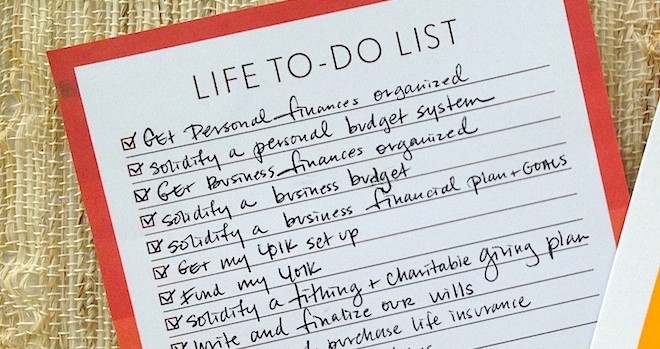 LIFE TO-DO LIST
Get Personal finances organized
Solidify a personal budget system
Get Business finances organized
Solidify a business budget
Solidify a business financial plan + GOALS
Get my 401k set up
Fund my 401k
Solidify a tithing + charitable giving plan
Write and finalize our wills
purchase life insurance